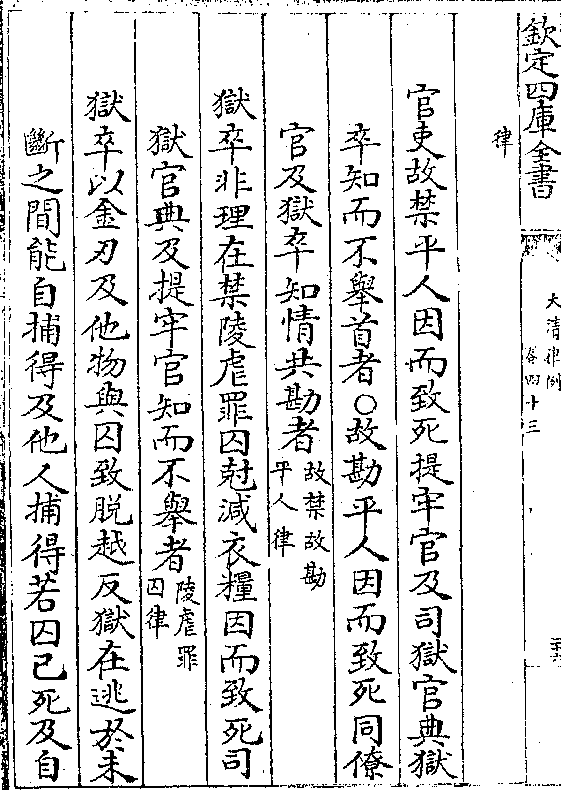 欽定四庫全書
大清律例
卷四十三
律
官吏故禁平人因而致死提牢官及司獄官典獄
卒知而不舉首者○故勘平人因而致死同僚
官及獄卒知情共勘者故禁故勘
平人律
獄卒非理在禁陵虐罪囚尅減衣糧因而致死司
獄官典及提牢官知而不舉者陵虐罪
囚律
獄卒以金刃及他物與囚致脱越反獄在逃於未
斷之間能自捕得及他人捕得若囚已死及自